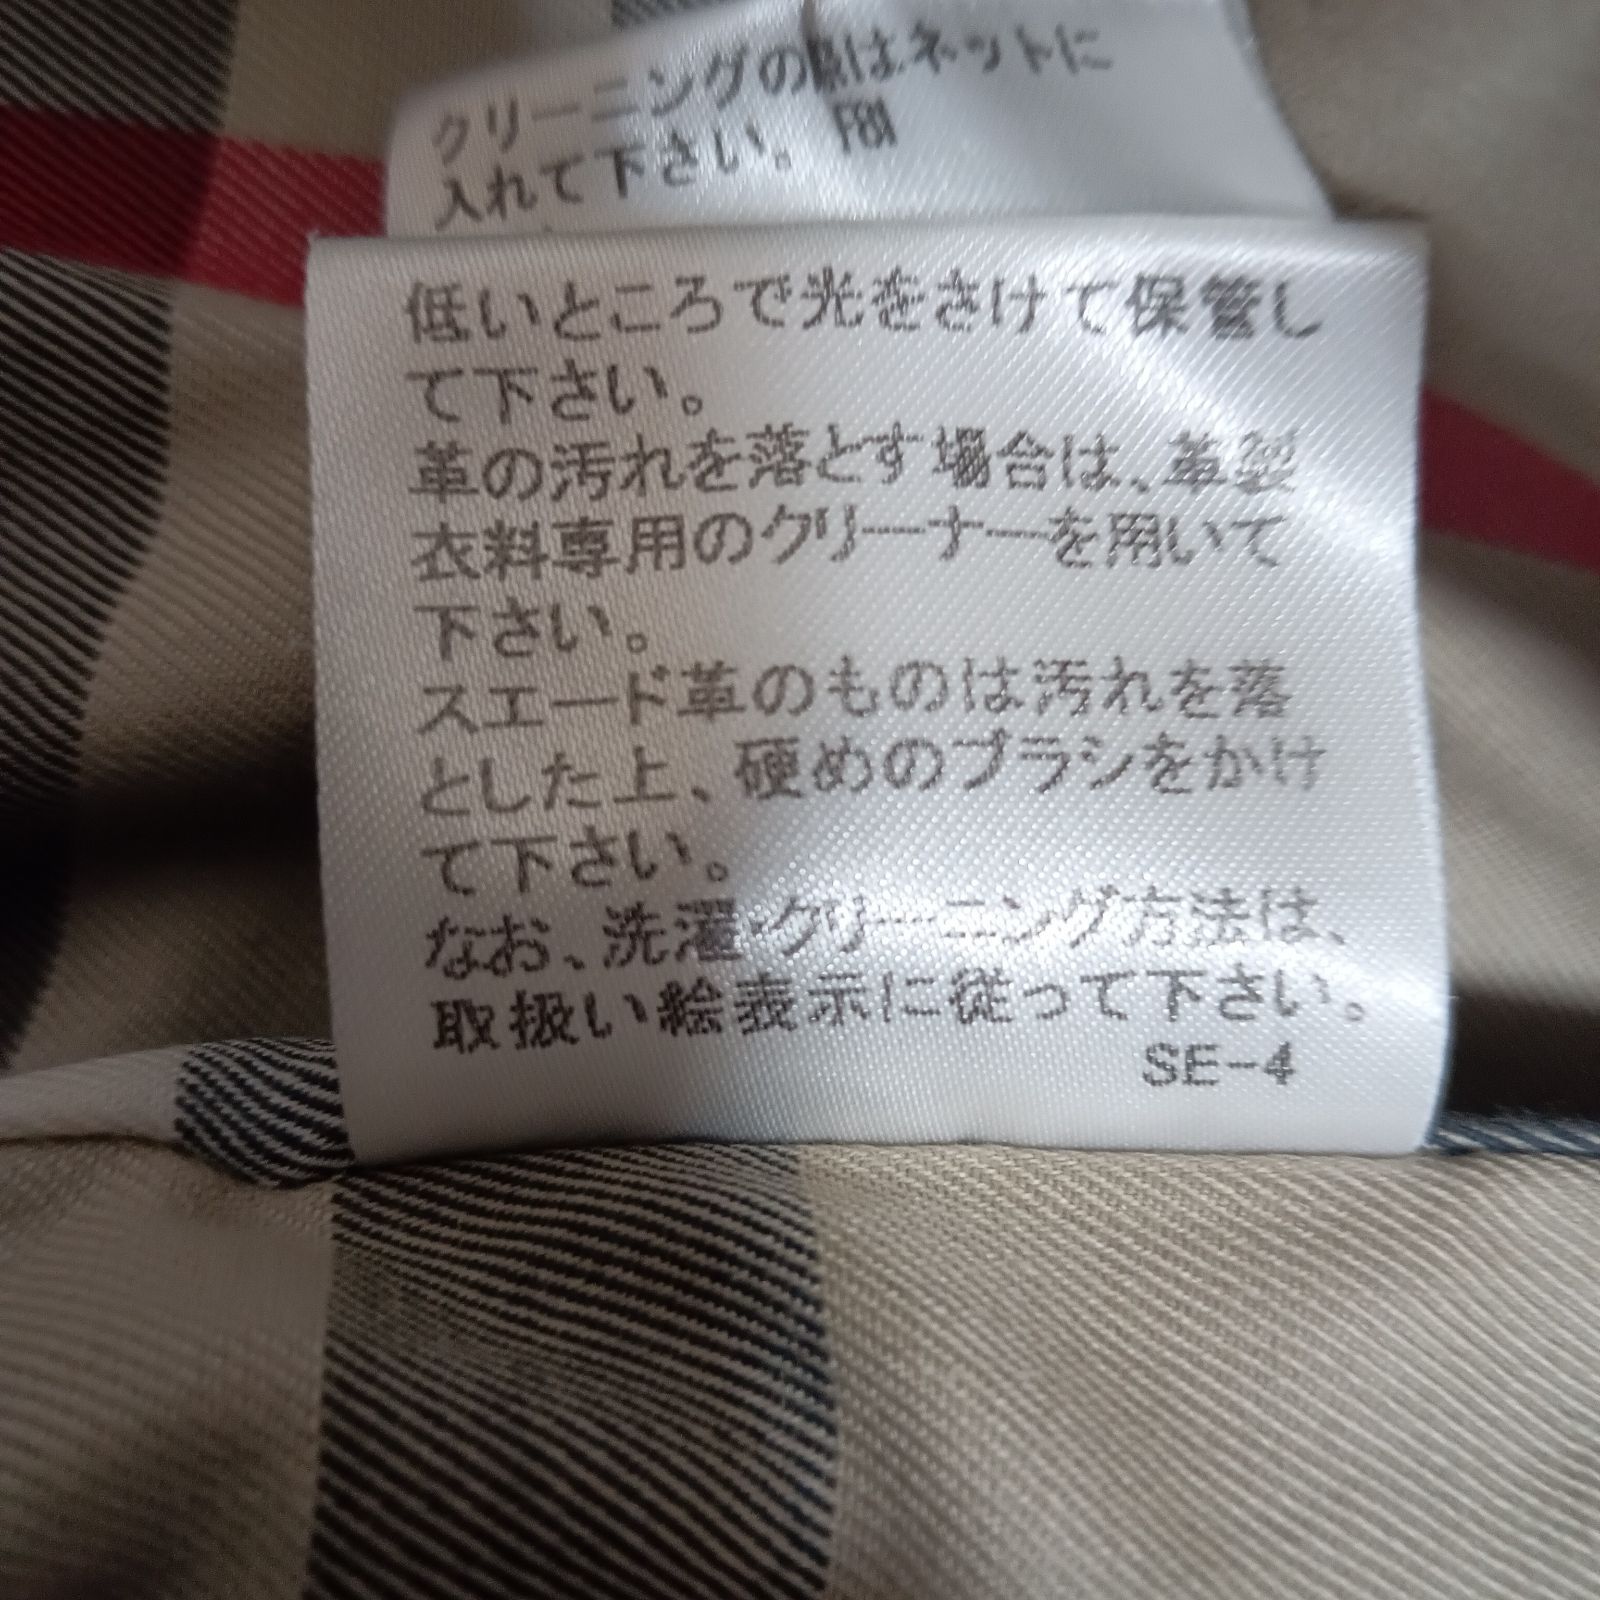 クリーニングの際はネットに
入れて下さい。 F81
低いところで光をさけて保管し
て下さい。
革の汚れを落とす場合は、革製
衣料専用のクリーナーを用いて
下さい。
スエード革のものは汚れを落
とした上、硬めのブラシをかけ
て下さい。
なお、洗濯・クリーニング方法は、
取扱い絵表示に従って下さい。
SE-4